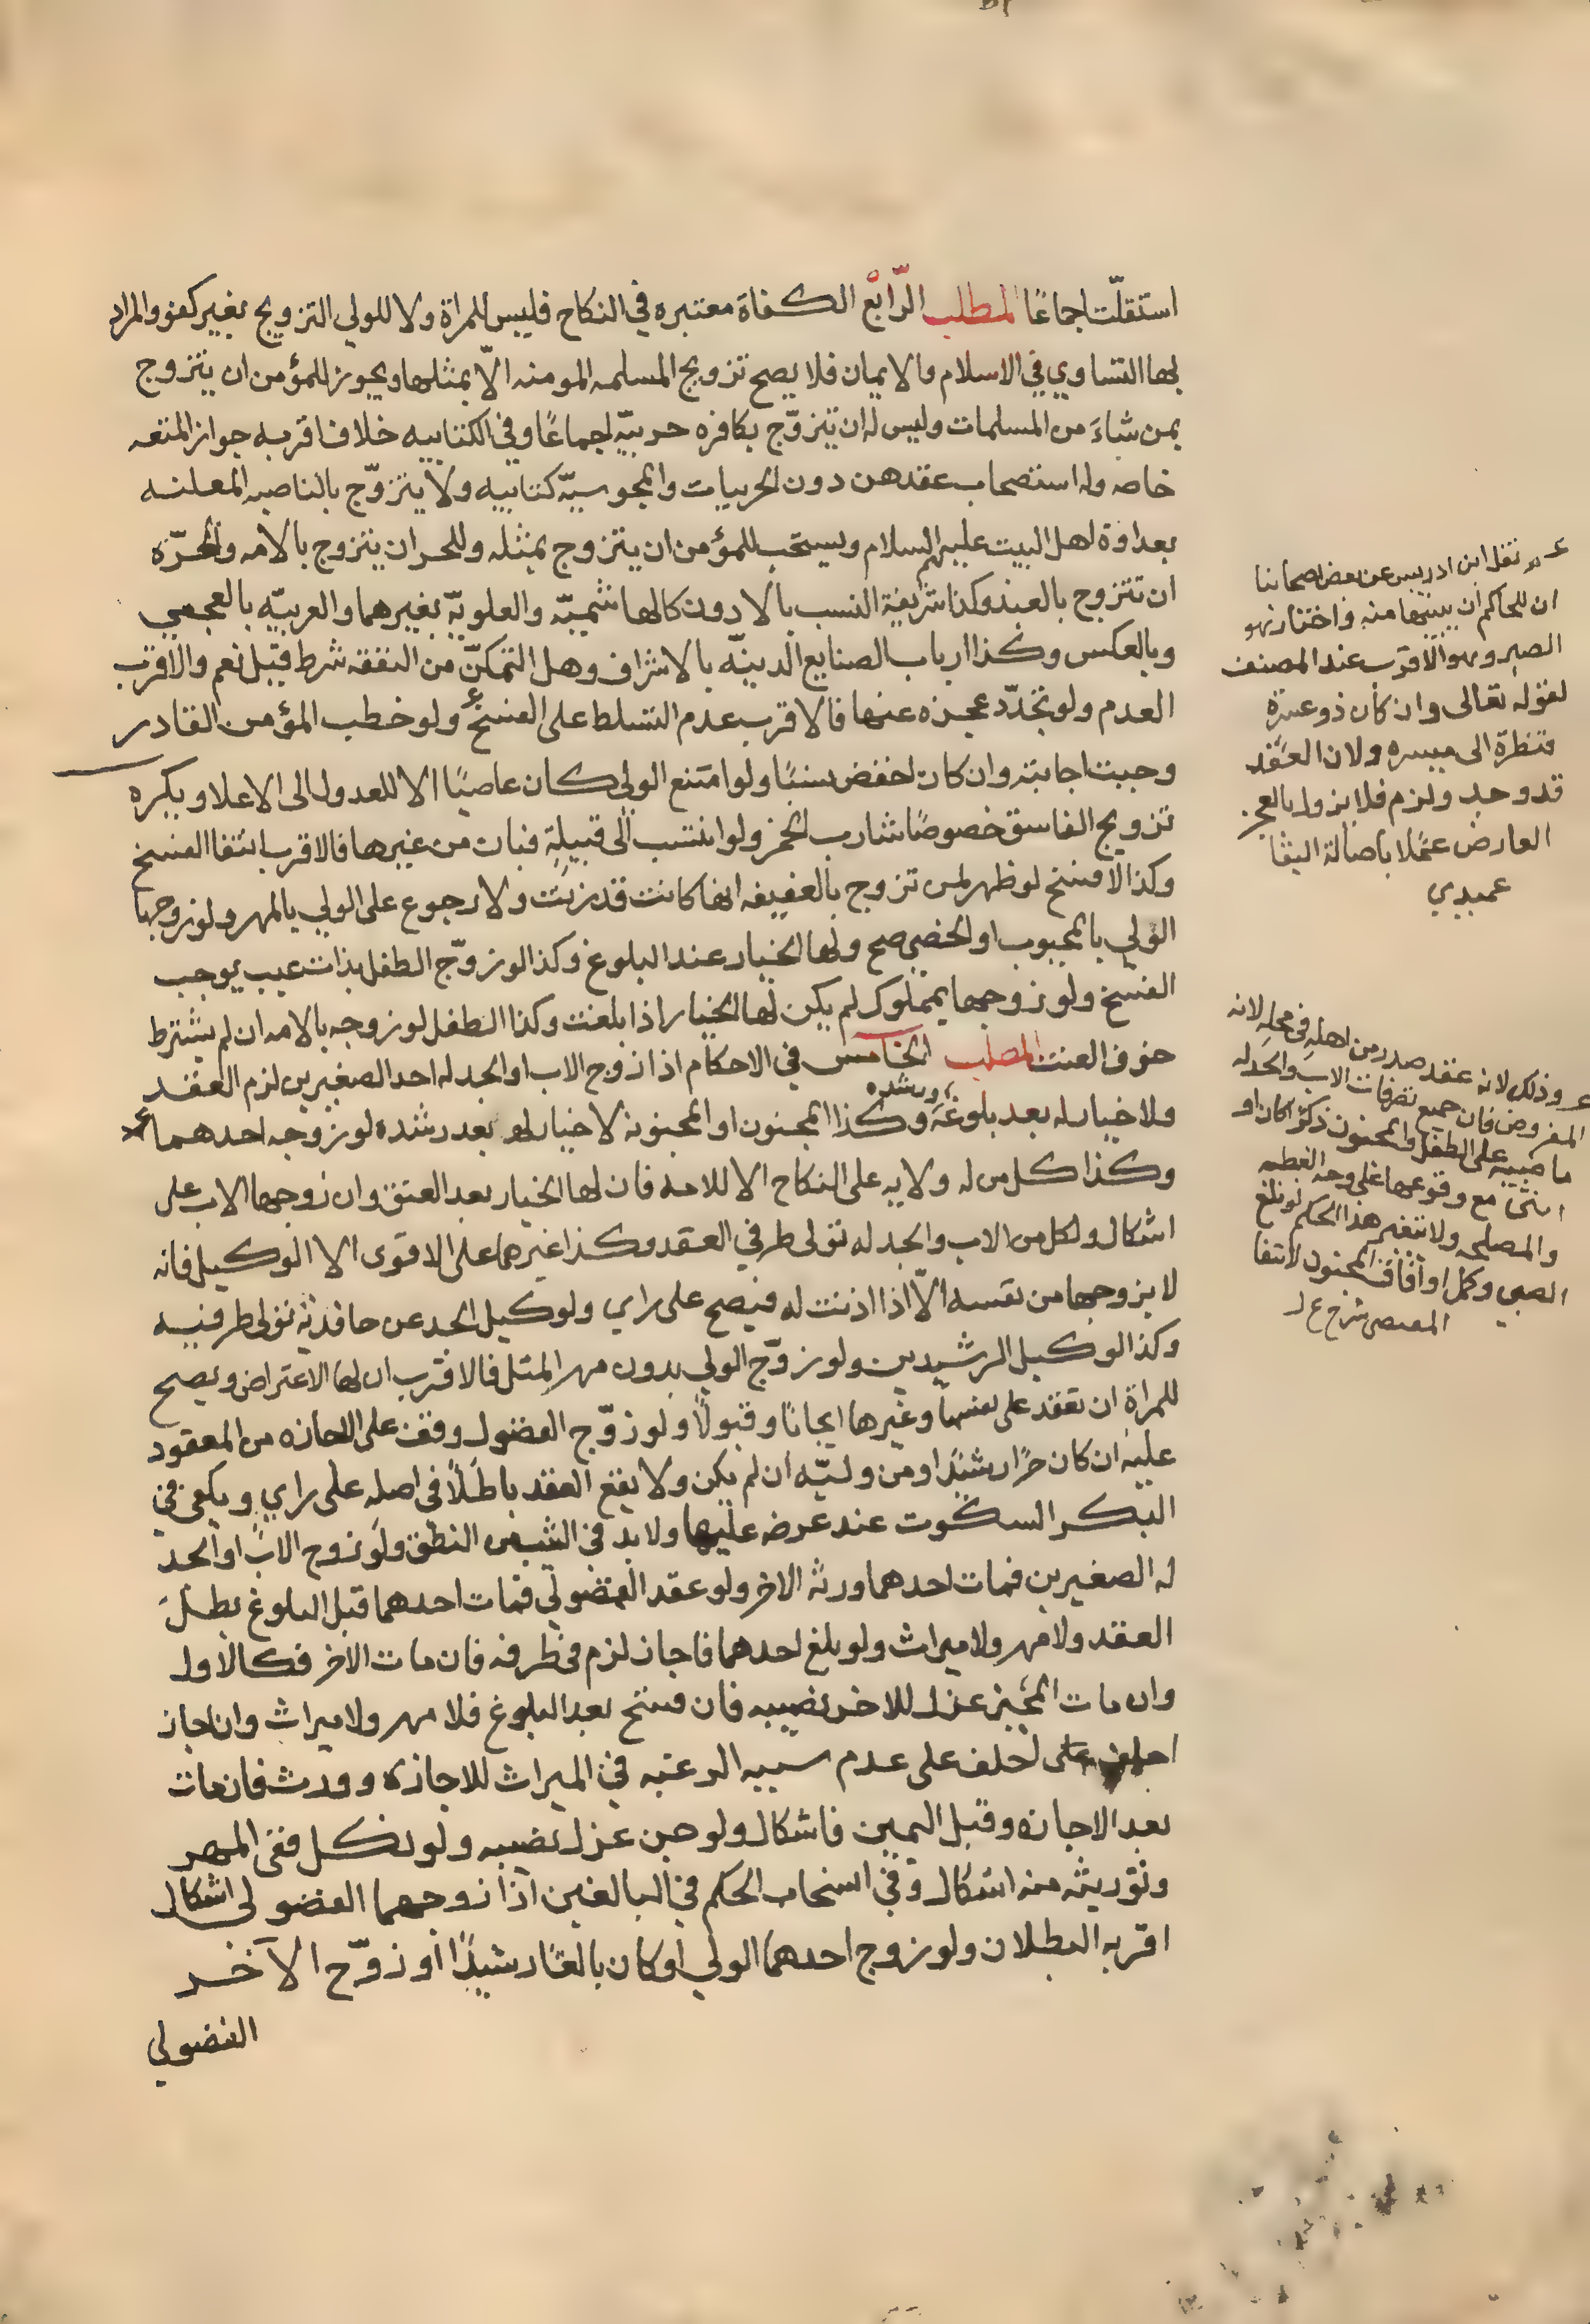 استقلّت اجماعًا المطلب الرّابع الكفاة معتبره في النكاح فليس للمراة ولا للولي التزويج بغير كفو والمراد
بها التساوي في الاسلام والايمان فلا يصح تزويج المسلمه المومنه الّا بمثلها ويجوز للمؤمن ان يتزوج
بمن شاءَ من المسلمات وليس له ان يتزوّج بكافره حربيّه اجماعًا وفي الكتابيه خلاف اقربه جواز المتعه
خاصه وله استصحاب عقدهن دون الحربيات والمجوسيّه كتابيه ولا يتزوّج بالناصبه المعلنه
بعداوة اهل البيت عليهم السلام ويستحب للمؤمن ان يتزوج بمثله وللحر ان يتزوج بالامه وللحرّه
ان تتزوج بالعبد وكذا شريفة النسب بالادون كالهاشميّه والعلويّه بغيرهما والعربيّه بالعجمي
وبالعكس وكذا ارباب الصنايع الدينّه بالاشراف وهل التمكنّ من النفقه شرط قيل نعم والاقرب
العدم ولو تجدّد عجزه عنها فالاقرب عدم التسلط على الفسخ ولو خطب المؤمن القادر
وجبت اجابته وان كان اخفض نسبًا ولو امتنع الولي كان عاصيًا الا للعدول الى الاعلا ويكره
تزويج الفاسق خصوصًا شارب الخمر ولو انتسب الى قبيلةٍ فبان من غيرها فالاقرب انتفا الفسخ
وكذا لا فسخ لو ظهر لمن تزوج بالعفيفه انها كانت قد زنت ولا رجوع على الولي بالمهر ولو زوجها
الولي بالمجبوب او الخصي صح ولها الخيار عند البلوغ وكذا لو زوّج الطفل بذات عيب يوجب
الفسخ ولو زوجها بمملوك لم يكن لها الخيار اذا بلغت وكذا الطفل لو زوجه بالامه ان لم يشترط
خوف العنت المطلب الخامس في الاحكام اذا زوج الاب او الجد له احد الصغيرين لزم العقد
ولا خيار له بعد بلوغه ورشده وكذا المجنون او المجنونه لا خيار له بعد رشده لو زوجه احدهما
وكذا كل من له ولايه على النكاح الا للامه فان لها الخيار بعد العتق وان زوجها الاب على
اشكال ولكل من الاب والجد له تولى طرفي العقد وكذا غيرهما على الاقوى الا الوكيل فانه
لا يزوجها من نفسه الّا اذا اذنت له فيصح على راي ولوكيل الجد عن حافديه تولى طرفيه
وكذا لوكيل الرشيدين ولو زوّج الولي بدون مهر المثل فالاقرب ان لها الاعتراض ويصح
للمراة ان تعقد على نفسها وغيرها ايجابًا وقبولًا ولو زوّج الفضول وقف على الاجازه من المعقود
عليه ان كان حرًا رشيدًا او من وليّه ان لم يكن ولا يقع العقد باطلًا في اصله على راي ويكفي في
البكر السكوت عند عرضه عليها ولا بد في الثيب من النطق ولو زوج الاب او الجد
له الصغيرين فمات احدهما ورثه الاخر ولو عقد الفضولي فمات احدهما قبل البلوغ بطل
العقد ولا مهر ولا ميراث ولو بلغ احدهما فاجاز لزم في طرفه فان مات الاخر فكالاول
وان مات المجيز عزل للاخر نصيبه فان فسخ بعد البلوغ فلا مهر ولا ميراث وان اجاز
احلف على عدم سببيه الرغبه في الميراث للاجازه وورث فان مات
بعد الاجازه وقبل اليمين فاشكال ولو جن عزل نصيبه ولو نكل ففي المهر
وتوريثه منه اشكال وفي انسحاب الحكم في البالغين اذا زوجهما الفضولي اشكال
اقربه البطلان ولو زوج احدهما الولي او كان بالغًا رشيدًا او زوّج الآخر
الفضولي
نقل ابن ادريس عن بعض اصحابنا
ان للحاكم ان يبينها منه واختار هو
الصبر وهو الاقرب عند المصنف
لقوله تعالى وان كان ذو عسرة
فنظرة الى ميسره ولان العقد
قد وجد ولزم فلا يزول بالعجز
العارض عملا باصالة البقا
عميدي
وذلك لانه عقد صدر من اهله في محله لانه
المفروض فان جميع تصرفات الاب والجد له
ماضيه على الطفل والمجنون ذكرًا كان او
انثى مع وقوعها على وجه الغبطه
والمصلحه ولا يتغير هذا الحكم لو بلغ
الصبي وكمل او افاق المجنون لانتفا
المقتضي شرح ع ل